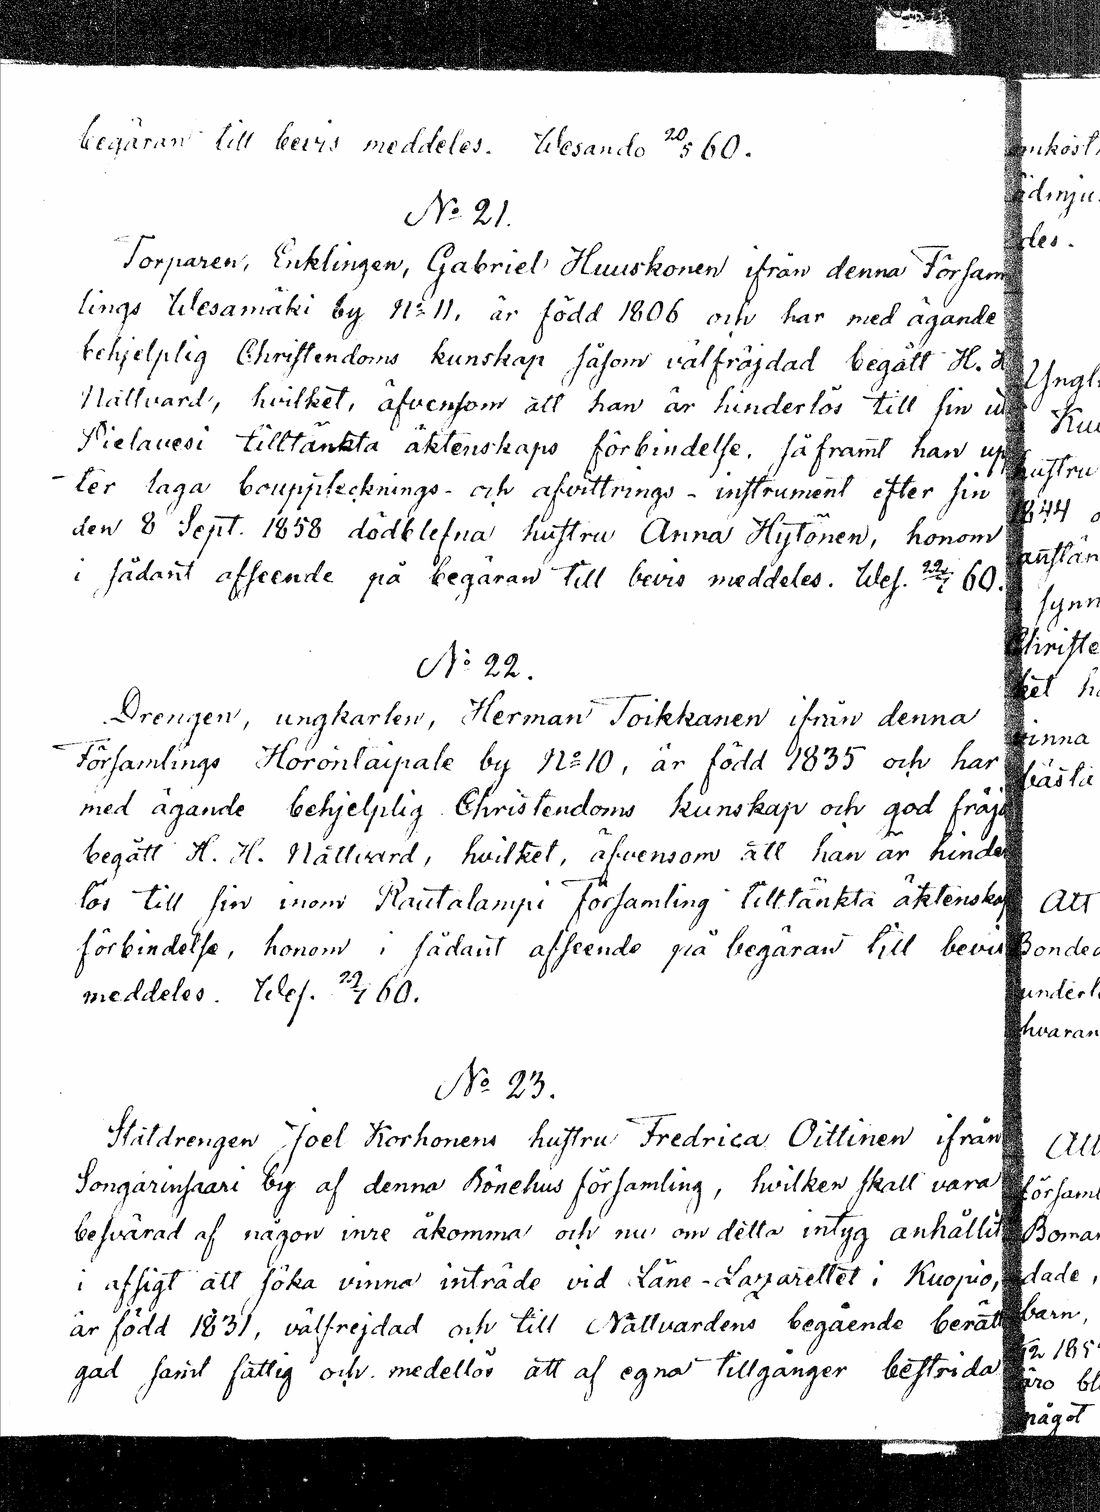 begäran till bevis meddeles. Wesando 20/5 60.
No 21.
Torparen, Enklingen, Gabriel Huuskonen ifrån denna Försam
lings Wesamäki by No 11, är född 1806 och har med ägande
behjelplig Christendoms kunskap såsom välfräjdad begått H. H
Nattvard, hvilket, äfvensom att han är hinderlös till sin i
Pielavesi tilltänkta äktenskaps förbindelse, såframt han up
ter laga bouppteknings- och afvittrings-instrument efter sin
den 8 Sept. 1858 dödblefna hustru Anna Hytönen, honom
i sådant afseende på begäran till bevis meddeles. Wes. 22/7 60.
No 22.
Drengen, ungkarlen, Herman Toikkanen ifrån denna
Församlings Horontaipale by No 10, är född 1835 och har
med ägande behjelplig Christendoms kunskap och god fräjd
begått H. H. Nattvard, hvilket, äfvensom att han är hinder
lös till sin inom Rautalampi församling tilltänkta äktenskap
förbindelse, honom i sådant afseende på begäran till bevis
meddeles. Wes. 22/7 60.
No 23.
Statdrengen Joel Korhonens hustru Fredrica Oittinen ifrån
Songarinsaari by af denna Bönehus församling, hvilken skall vara
besvärad af någon inre åkomma och nu om detta intyg anhållit
i afsigt att söka vinna inträde vid Läne-Lazarettet i Kuopio,
är född 1831, välfrejdad och till Nattvardens begående berätt
gad samt fattig och medellös att af egna tillgånger bestrida
omkost
ödmju
des.
Yngl
Kuu
hustru
1844
anstän
synn
Christe
ket ha
vinna
bästa
Att
Bonde
underl
hvaran
Att
församl
Boman
dade,
barn,
185
äro bl
något